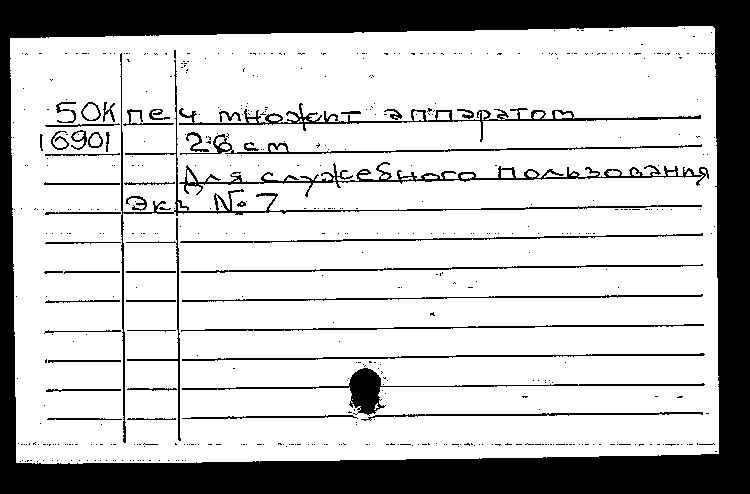 50К печ множит аппаратом
16901 26 cm
Для служебного пользования
экз № 7.